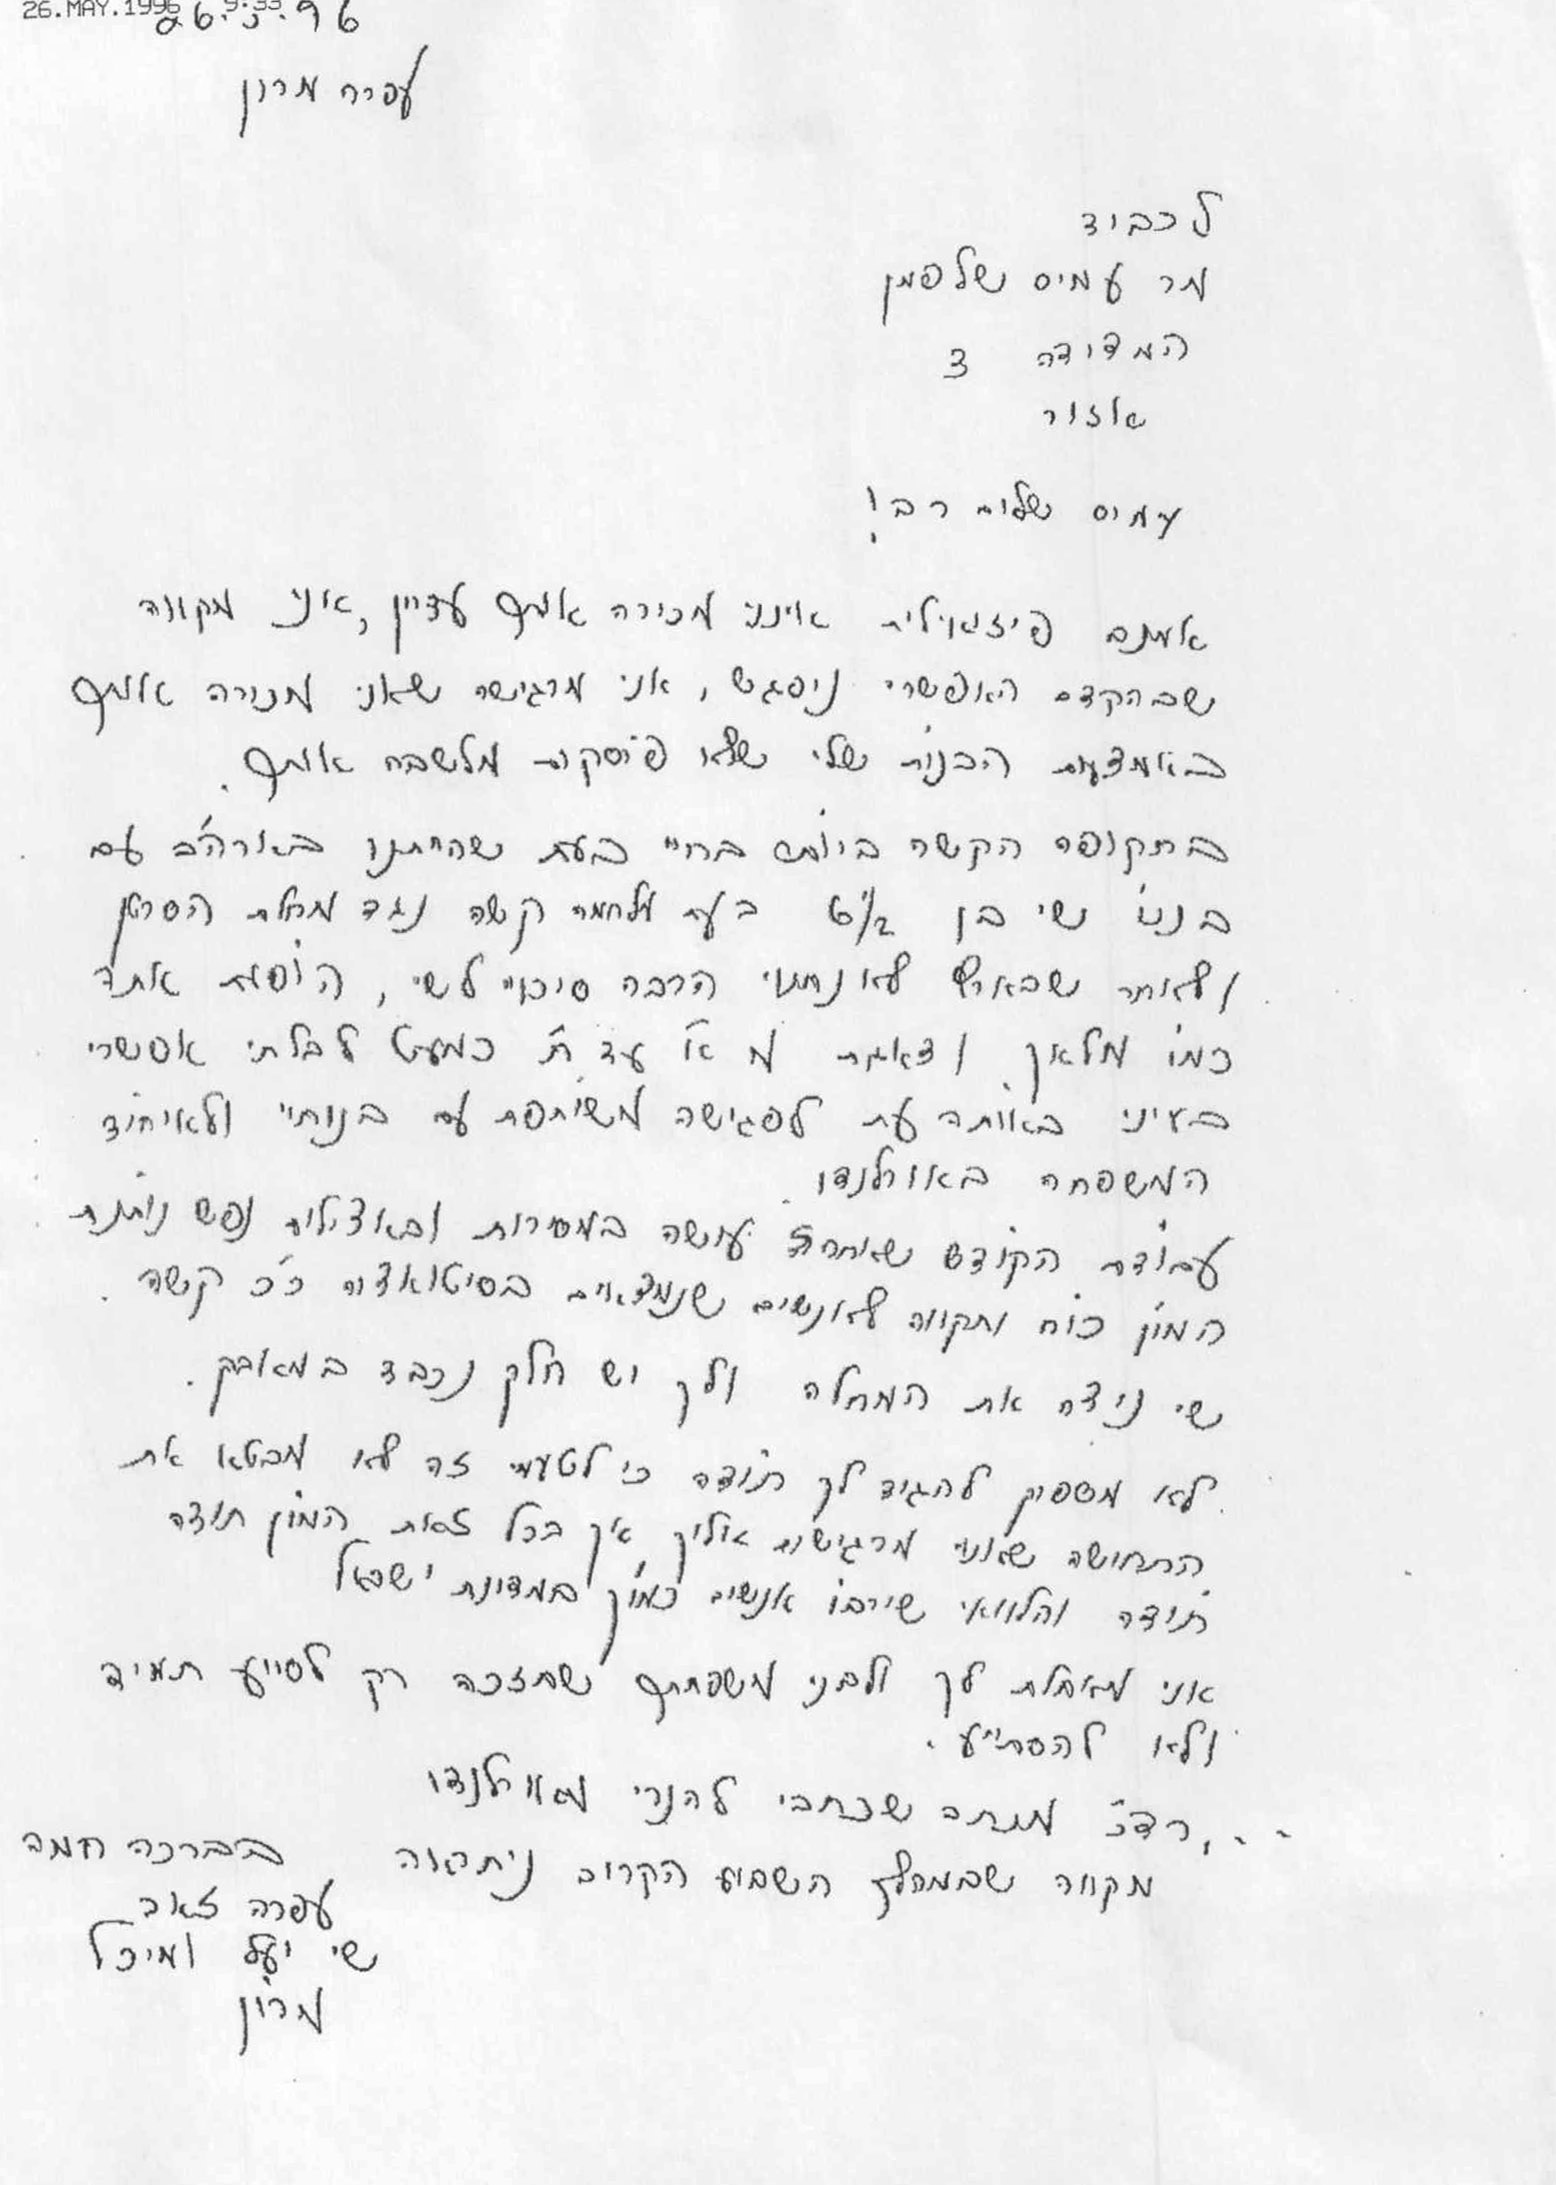 26.MAY.1996 9:33
26.5.96
עפרה מרון
לכבוד
מר עמיס שלפמן
המדידה 3
אזור
עמיס שלום רב!
אמנם פיזואלית אינני מכירה אותך עדיין, אני מקווה
שבהקדם האפשרי ניפגש, אני מרגישה שאני מכירה אותך
באמצעות הבנות שלי שלא פוסקות מלשבח אותך.
בתקופה הקשה ביותר בחיי בעת שהייתנו בארה"ב עם
בננו שי בן 6 1/2 בעת מלחמה קשה נגד מחלת הסרטן
ולאחר שבארץ לא נתנו הרבה סיכוי לשי, הופעת אתה
כמו מלאך ודאגת מא' עד ת' כמעט לבלתי אפשרי
בעיני באותה עת לפגישה משותפת עם בנותיי ולאיחוד
המשפחה באורלנדו.
עבודת הקודש שאתה עושה במסירות ובאצילות נפש נותנת
המון כוח ותקווה לאנשים שנמצאים בסיטואציה כ"כ קשה.
שי ניצח את המחלה ולך יש חלק נכבד במאבק.
לא מספיק להגיד לך תודה כי לטעמי זה לא מבטא את
התחושה שאני מרגישה אליך, אך בכל זאת המון תודה
תודה והלוואי שירבו אנשים כמוך במדינת ישראל
אני מאחלת לך ולבני משפחתך שתזכה רק לסייע תמיד
ולא להסתייע.
רצ"ב מכתב שכתבתי להנרי מאורלנדו
מקווה שבמהלך השבוע הקרוב ניתראה
בברכה חמה
עפרה זאב
שי יעל ומיכל
מרון